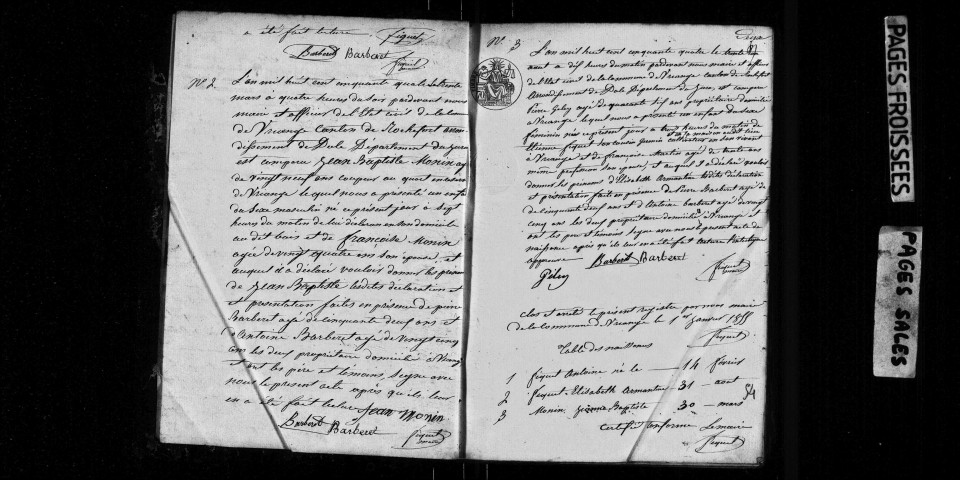 a été fait lecture. Fiquet
Barberet Barberet
Fiquet
maire
N° 2.
L'an mil huit cent cinquante quatre le trente
mars à quatre heures du soir pardevant nous
maire et officier de l'Etat civil de la commune
de Vriange Canton de Rochefort arron-
dissement de Dole Département du Jura
est comparu Jean Baptiste Monin agé
de vingt neuf ans coupeur au
de Vriange lequel nous a présenté un enfant
du sexe masculin né ce présent jour à sept
heures du matin de lui déclarant en son domicile
au dit bois et de Francoise Monin
agée de vingt quatre ans son épouse, et
auquel il a déclaré vouloir donner les prénoms
de Jean Baptiste lesdites déclaration et
et présentation faites en présence de pierre
Barberet agé de cinquante deux ans et
d'Antoine Barberet agé de vingt cinq
ans les deux propriétaire domicilié à Vriange
et ont les père et témoins, signé avec
nous le présent acte après qu'il leur
en a été fait lecture Jean Monin
Barberet Barberet
Fiquet
maire
N° 3
L'an mil huit cent cinquante quatre le trente un
aout à dix heures du matin pardevant nous maire et officier
de l'Etat civil de la commune de Vriange canton de Rochefort
Arrondissement de Dole Département du Jura, est comparu
Pierre Geley agé de quarante six ans propriétaire domicilié
à Vriange lequel nous a présenté un enfant du sexe
féminin née ce présent jour à trois heures du matin de
et en sa maison au dit lieu
Etienne fiquet cultivateur en son vivant
à Vriange et de Françoise Martin agée de trente ans
même profession son épouse et auquel il a déclaré vouloir
donner les prénoms d'Elisabeth Armantine lesdites déclaration
et présentation fait en présence de Pierre Barberet agé de
de cinquante deux ans et d'Antoine barberet agé de vingt
cinq ans les deux propriétaire domicilié à Vriange et
ont les père et témoins signé avec nous le present acte de
naissance après qu'il leur en a été fait lecture
approuvé
Barberet Barberet
Geley
Fiquet
maire
Clos et arreté le présent registre par nous maire
de la Commune de Vriange le 1er Janvier 1855
Fiquet
Table des naissances
1 fiquet Antoine né le 14 février
2 fiquet Elisabeth Armantine 31 aout
54
3 Monin, Jean Baptiste 30 mars
Certifié conforme Le maire
Fiquet
PAGES FROISSEES
PAGES SALES